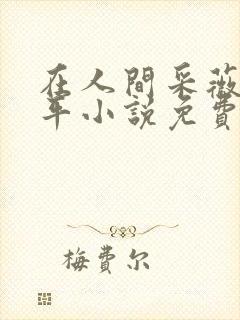 在人間采薇
年小說免費
梅費尔